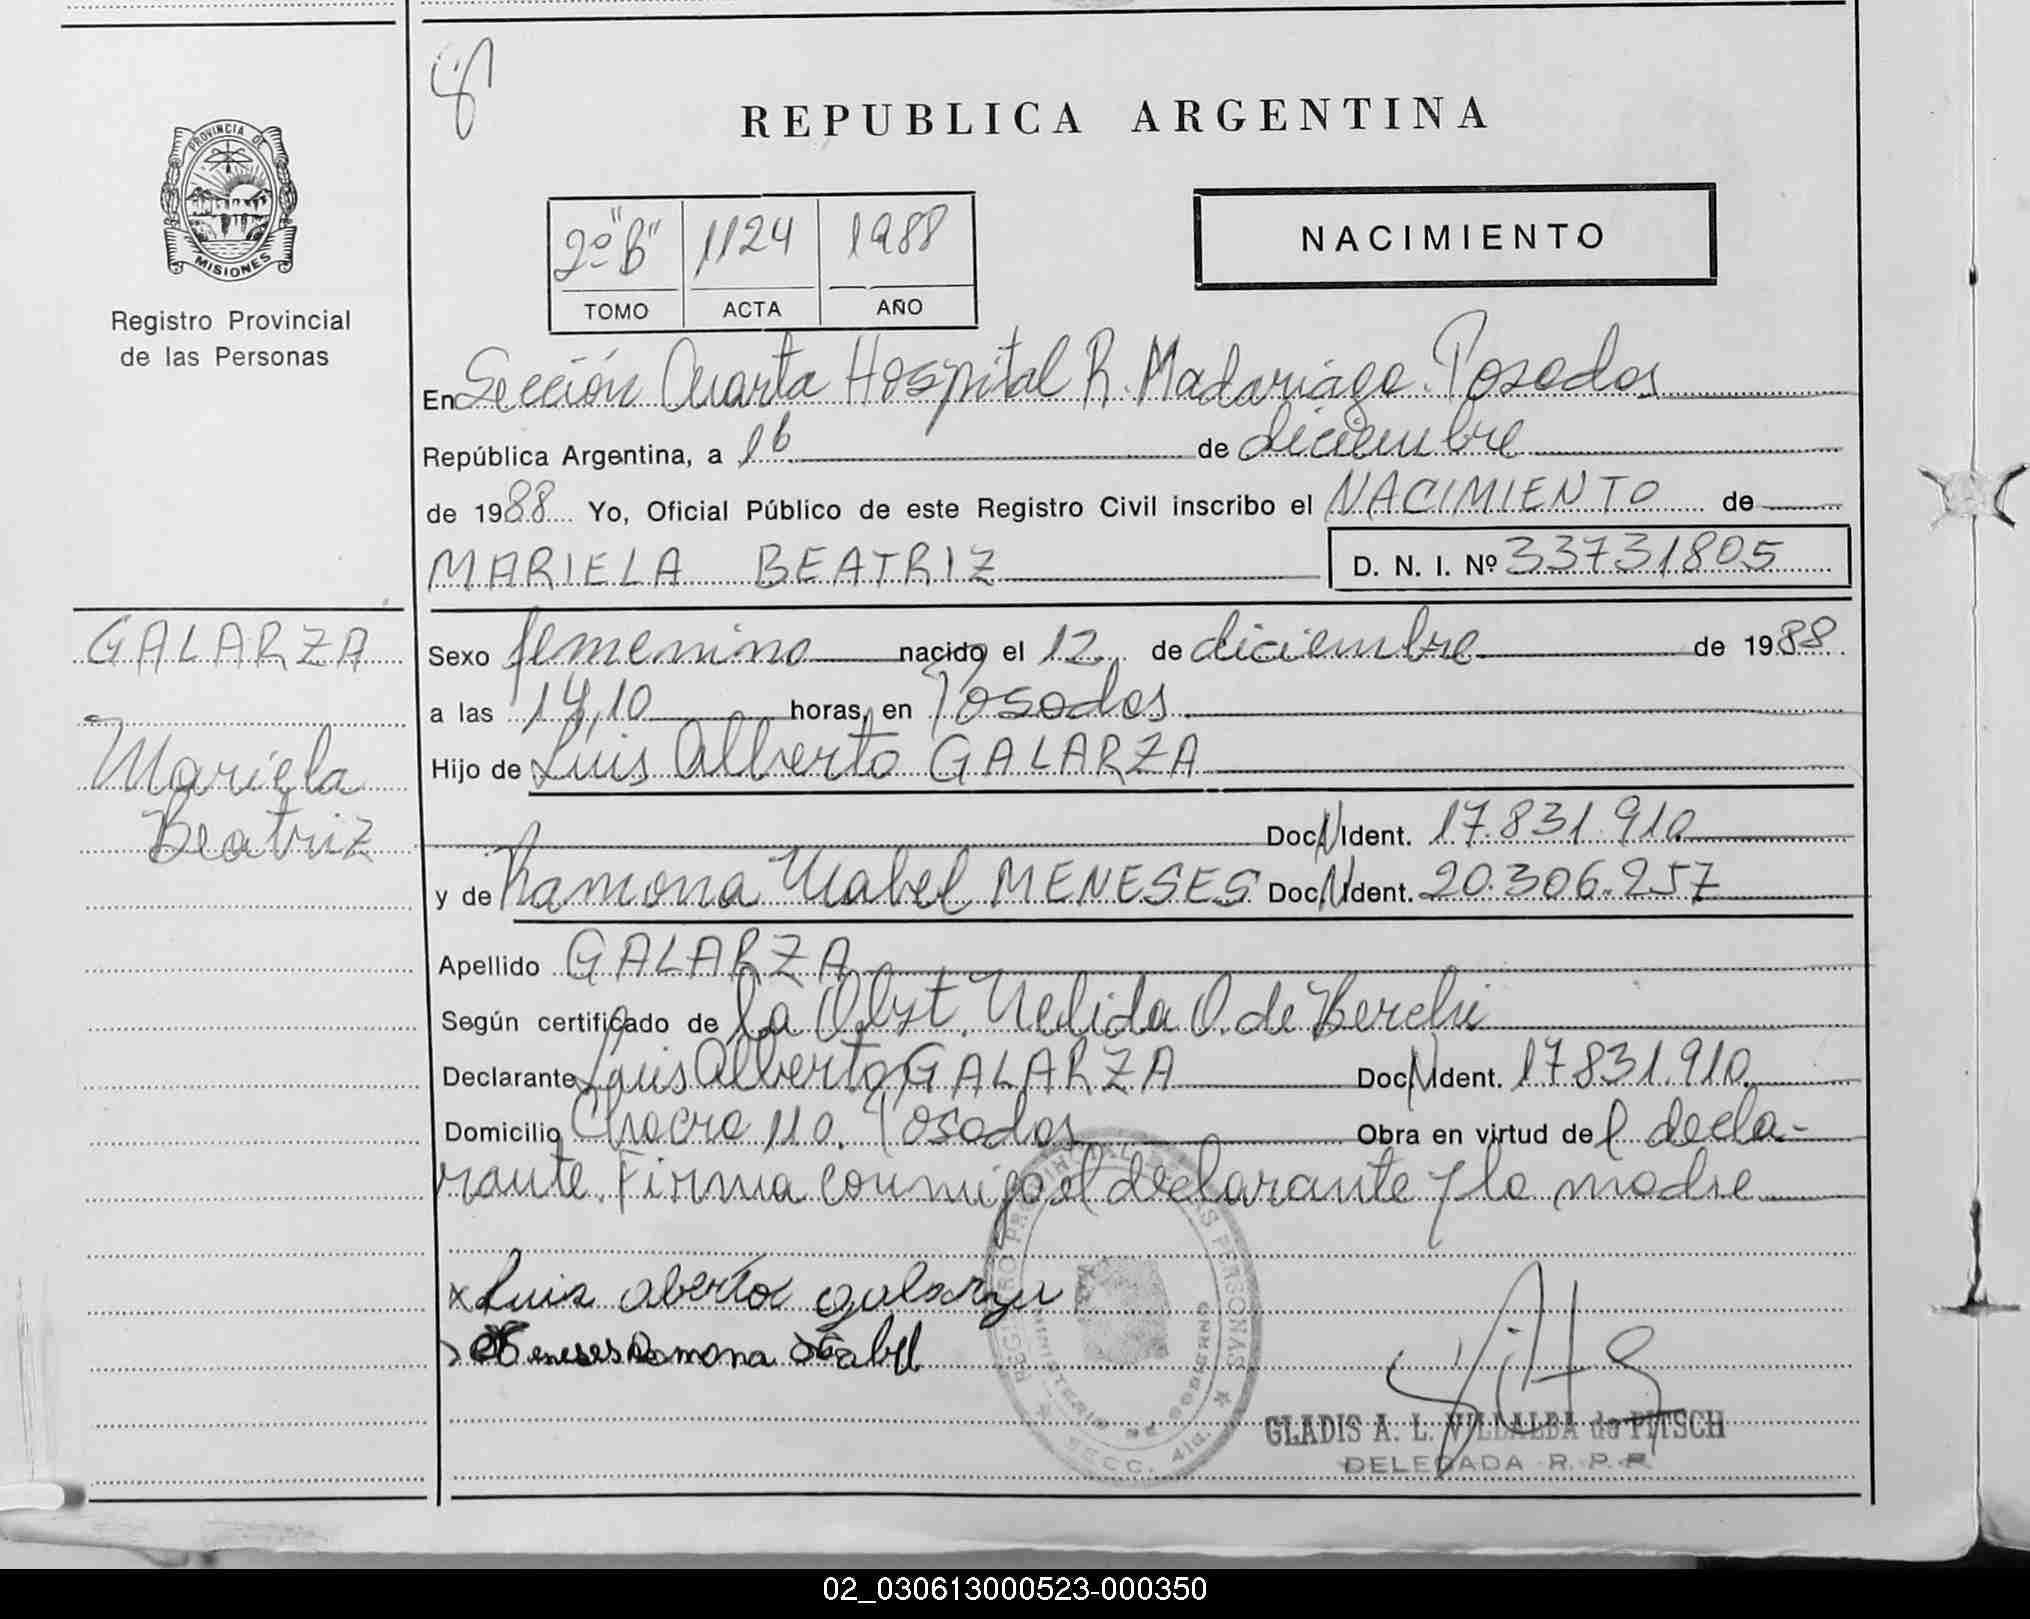 REPUBLICA ARGENTINA
PROVINCIA DE
MISIONES
Registro Provincial
de las Personas
2º "B" 1124 1988
TOMO ACTA AÑO
NACIMIENTO
En Sección Cuarta Hospital R. Madariaga. Posadas
República Argentina, a 16 de diciembre
de 1988 Yo, Oficial Público de este Registro Civil inscribo el NACIMIENTO de
MARIELA BEATRIZ D. N. I. Nº 33731805
GALARZA
Mariela
Beatriz
Sexo femenino nacido el 12 de diciembre de 1988
a las 14,10 horas, en Posadas
Hijo de Luis Alberto GALARZA
Doc N Ident. 17.831.910
y de Ramona Mabel MENESES Doc N Ident. 20.306.257
Apellido GALARZA
Según certificado de la Obst. Nelida O. de Berchi
Declarante Luis Alberto GALARZA Doc N Ident. 17831.910
Domicilio Chacra 110. Posadas Obra en virtud del decla-
rante. Firma conmigo el declarante y la madre
x Luis aberto galarza
Meneses Ramona Mabel
REGISTRO PROVINCIAL DE LAS PERSONAS
MINISTERIO DE GOBIERNO
SECC. 4ta.
GLADIS A. L. VILLALBA de PITSCH
DELEGADA R. P. P.
02_030613000523-000350